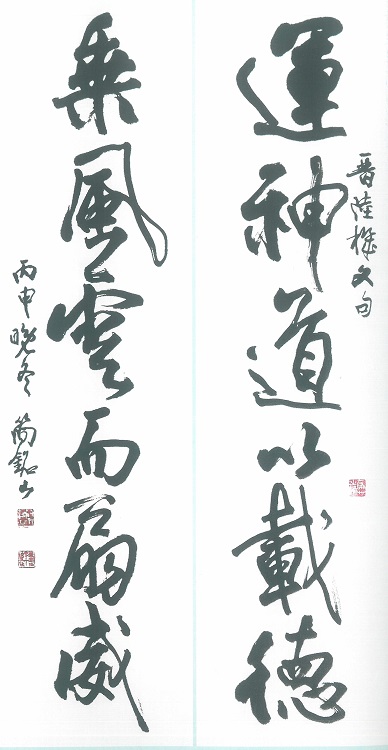 運神道以載德
晉陸機文句
乘風雲而扇威
丙申晚冬 簡銘山